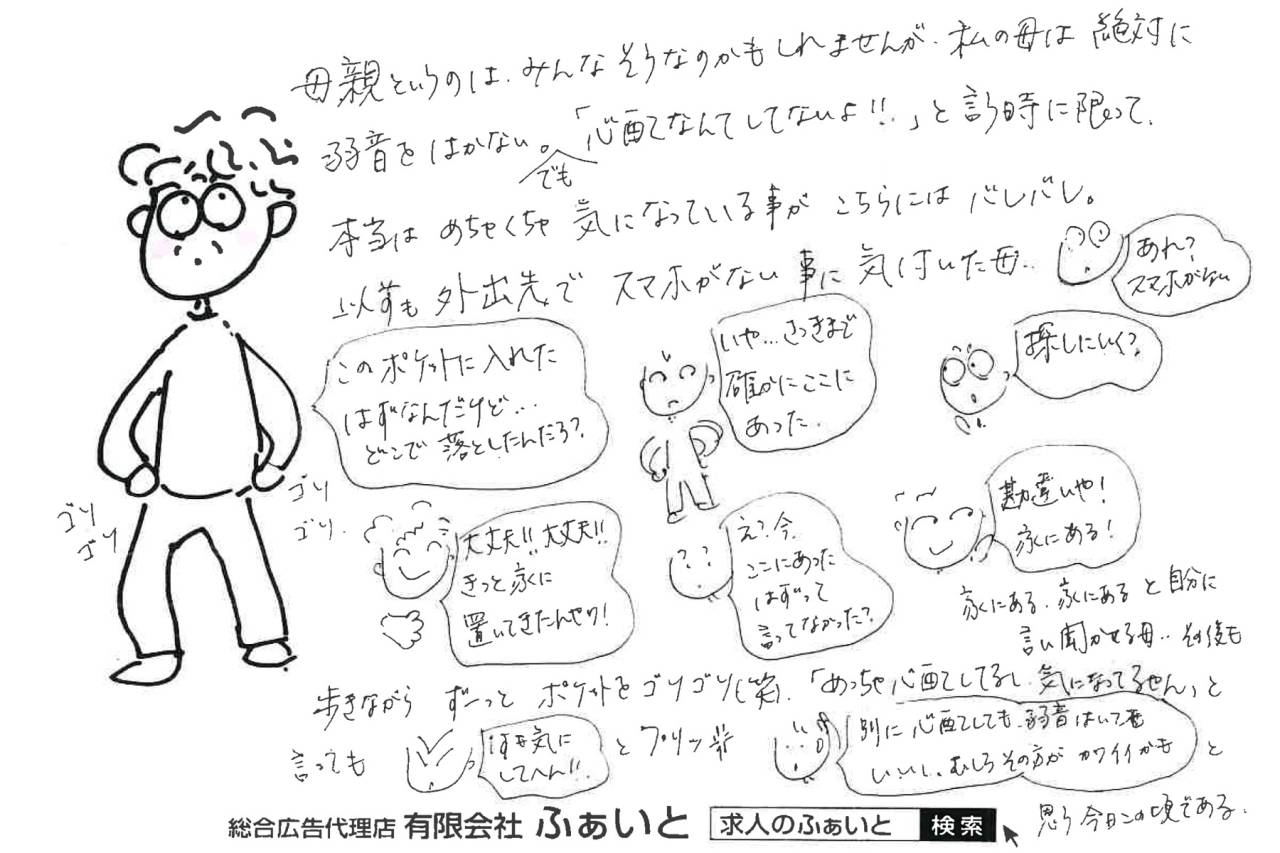 母親というのは、みんなそうなのかもしれませんが、私の母は絶対に
弱音をはかない。でも「心配なんてしてないよ!!」と言う時に限って、
本当は めちゃくちゃ 気になっている事が こちらには バレバレ。
以前も 外出先で スマホがない 事に 気付いた母..
あれ?
スマホがない
探しにいく?
いや...さっきまで
確かにここに
あった.
このポケットに入れた
はずなんだけど...
どこで落としたんだろ?
ゴソ
ゴソ
ゴソ
ゴソ.
大丈夫!!大丈夫!!
きっと家に
置いてきたんやわ!
え?今.
ここにあった
はずって
言ってなかった?
勘違いや!
家にある!
家にある.家にあると自分に
言い聞かせる母..その後も
歩きながら ずーっと ポケットをゴソゴソ(笑).「めっちゃ心配してるし.気になってるやん」と
言っても
気に
してへん!!
とプリッ
別に心配しても.弱音はいても
いいし.むしろその方が カワイイかも
と
思う今日この頃である.
総合広告代理店 有限会社 ふぁいと 求人のふぁいと 検索